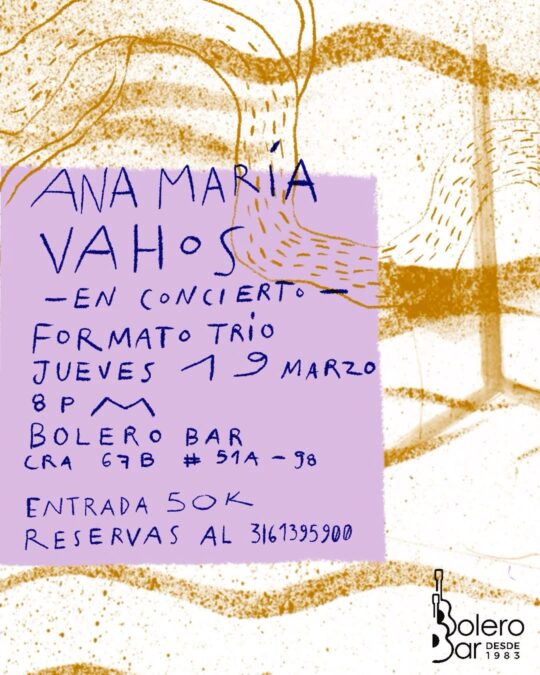 ANA MARÍA
VAHOS
— EN CONCIERTO —
FORMATO TRÍO
JUEVES 19 MARZO
8 PM
BOLERO BAR
CRA 67B # 51A - 98
ENTRADA 50K
RESERVAS AL 3161395900
Bolero
Bar DESDE
1983